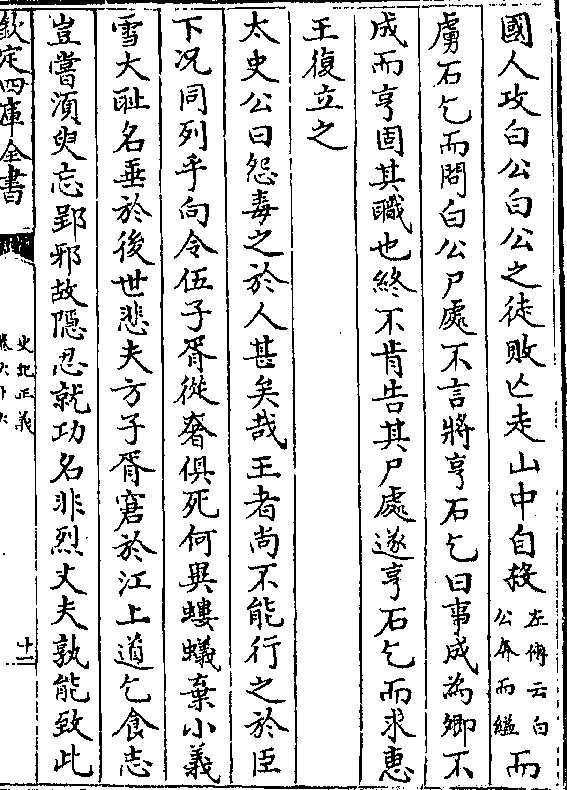 國人攻白公白公之徒敗亡走山中自殺左傳云白公奔而縊而
虜石乞而問白公尸處不言將亨石乞曰事成爲卿不
成而亨固其職也終不肯告其尸處遂亨石乞而求惠
王復立之
太史公曰怨毒之於人甚矣哉王者尚不能行之於臣
下况同列乎向令伍子胥從奢俱死何異螻蟻棄小義
雪大耻名垂於後世悲夫方子胥窘於江上道乞食志
豈嘗須臾忘郢邪故隠忍就功名非烈丈夫孰能致此
欽定四庫全書
史記正義
十一